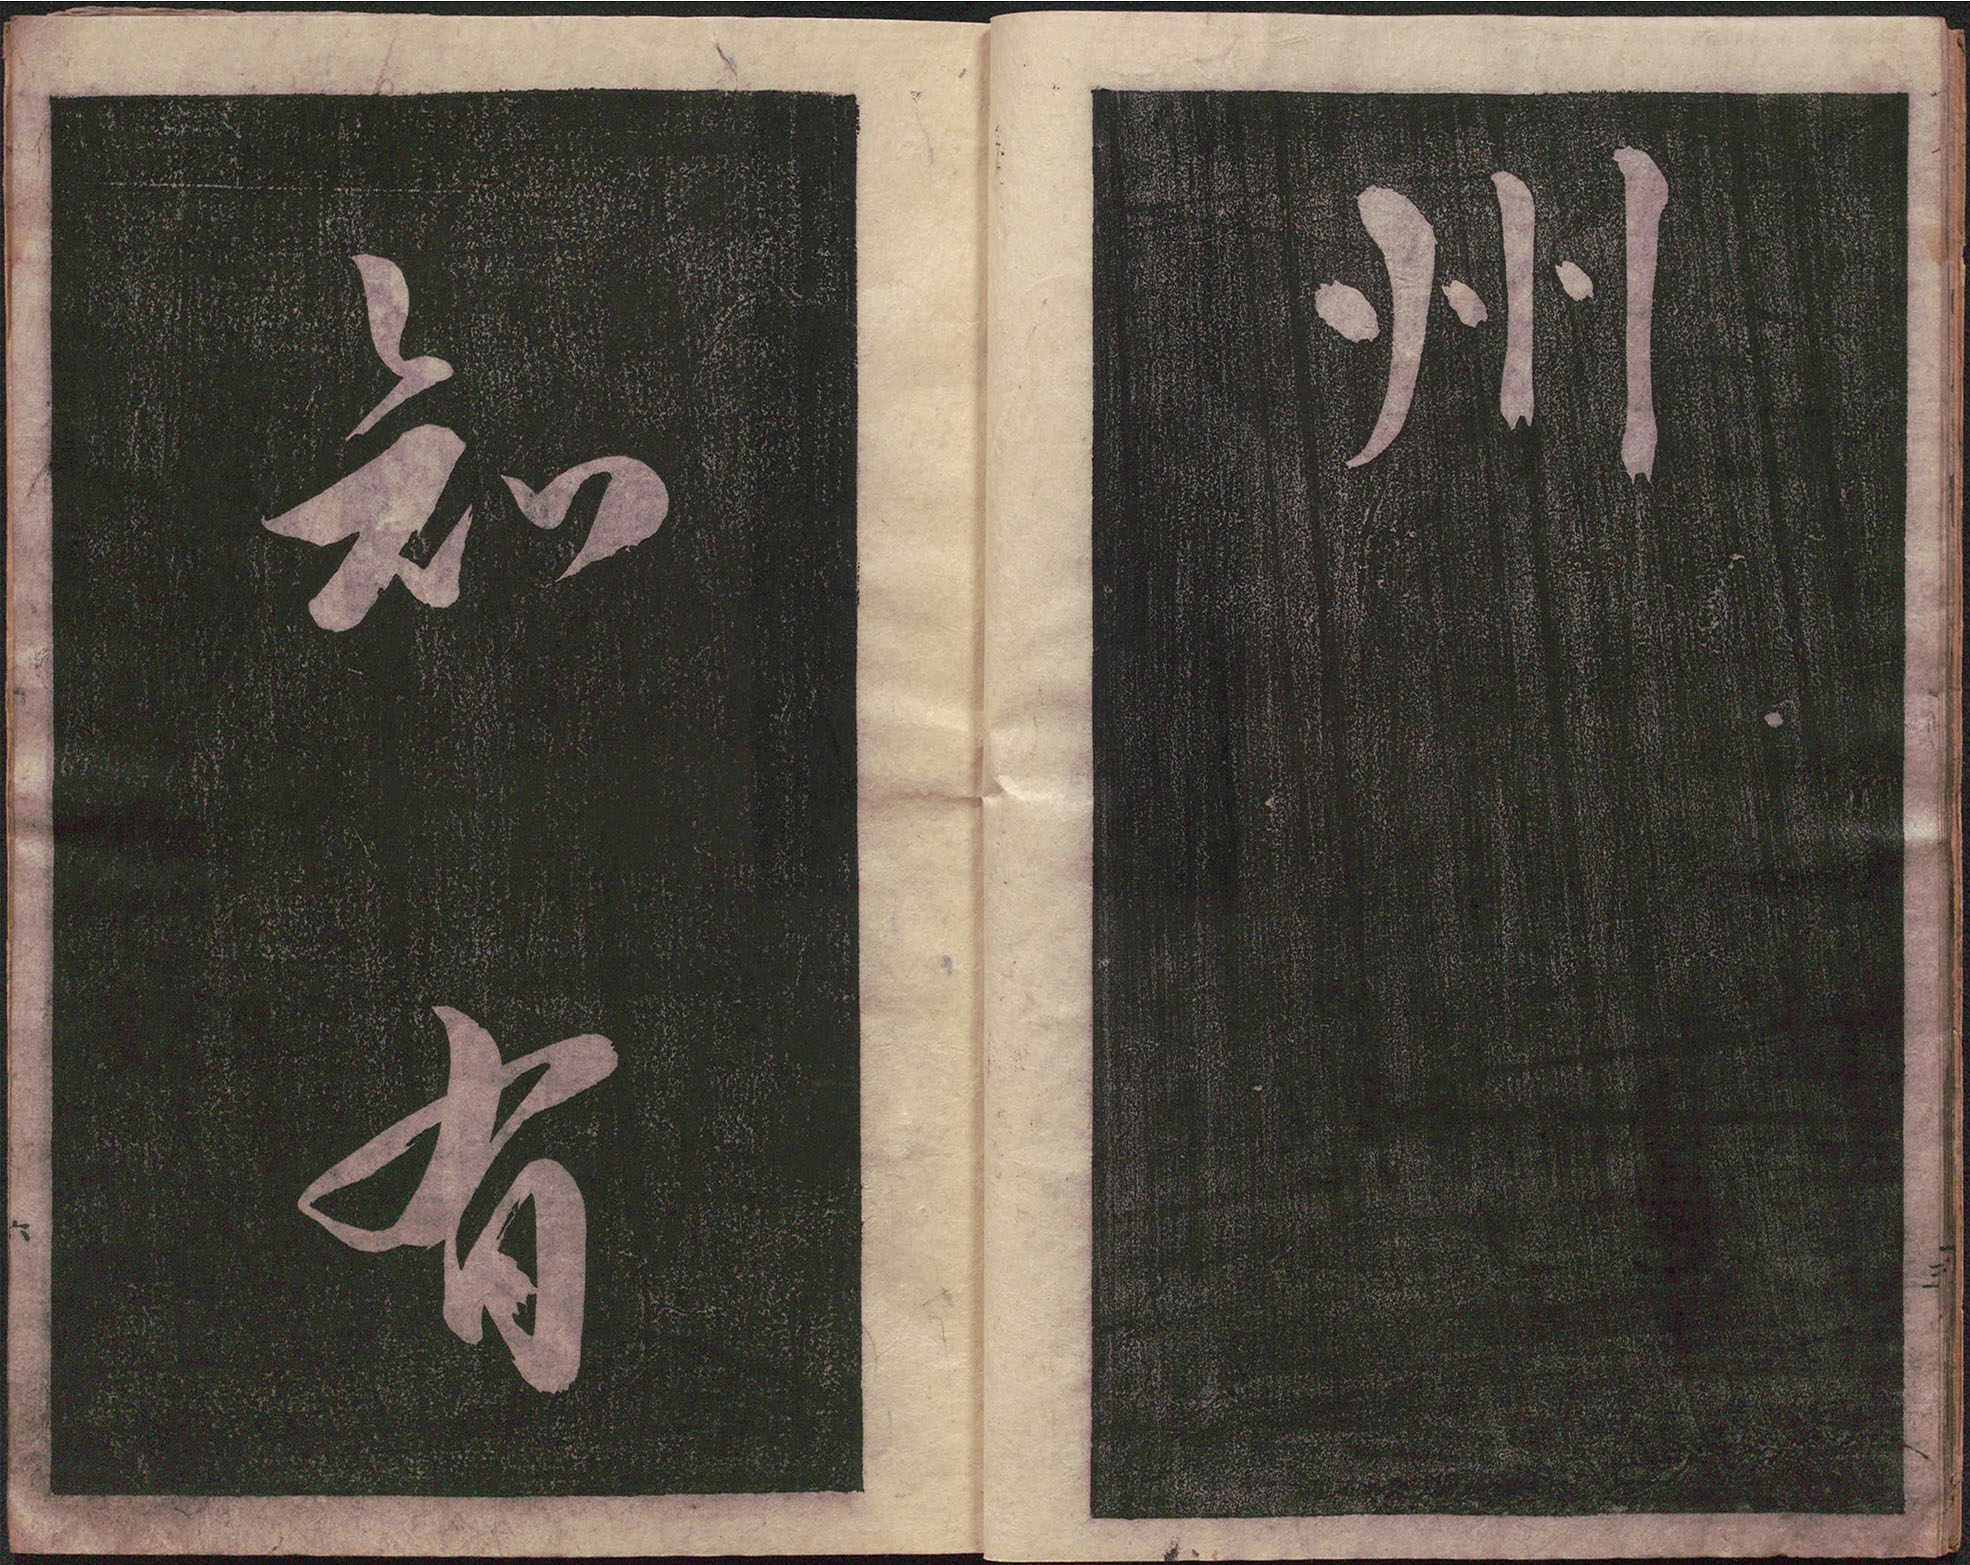 州
知有